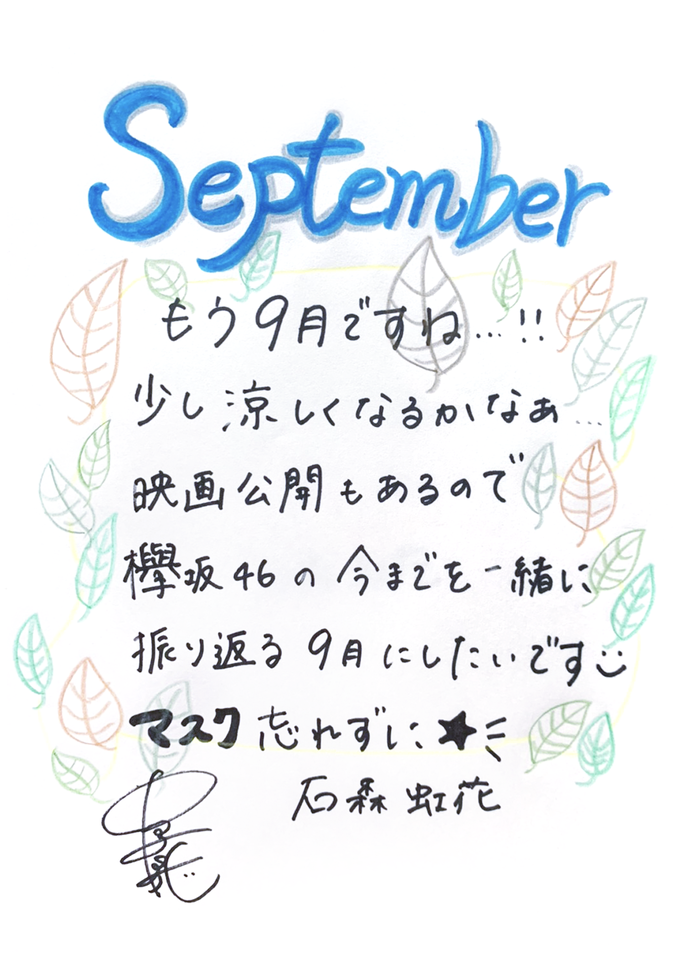 September
もう9月ですね...!!
少し涼しくなるかなぁ...
映画公開もあるので
欅坂46の今までを一緒に
振り返る9月にしたいです
マスク忘れずに★
石森虹花